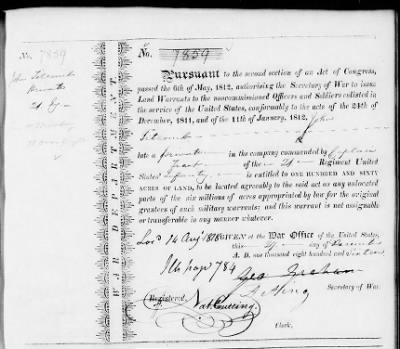 No. 7859
John Titcomb
WAR DEPARTMENT
No. 7859
Pursuant to the second section of an Act of Congress,
passed the 6th of May, 1812, authorising the Secretary of War to issue
Land Warrants to the noncommissioned Officers and Soldiers enlisted in
the service of the United States, conformably to the acts of the 24th of
December, 1811, and of the 11th of January, 1812, John
Titcomb
late a in the company commanded by Captain
of the Regiment United
States' Infantry is entitled to ONE HUNDRED AND SIXTY
ACRES OF LAND, to be located agreeably to the said act on any unlocated
parts of the six millions of acres appropriated by law for the original
grantees of such military warrants; and this warrant is not assignable
or transferable in any manner whatever.
GIVEN at the War Office of the United States,
this day of
A. D. one thousand eight hundred and
14 Augt 1818
page 784
Geo Graham
Acting
Secretary of War.
Registered, Nat. Cutting,
Clerk.